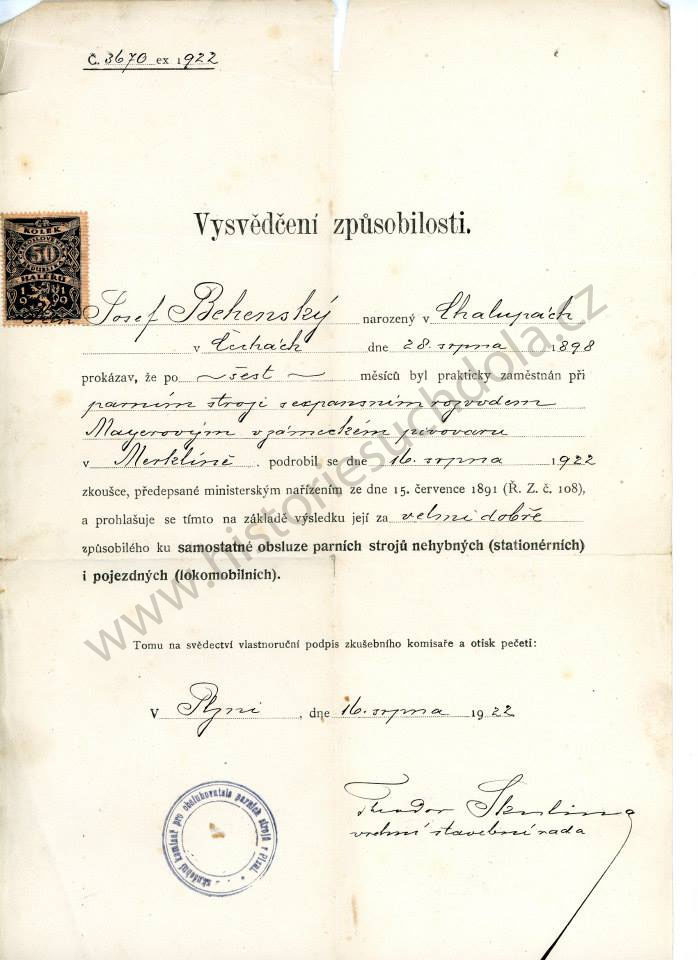 Č. 3670 ex 1922
Vysvědčení způsobilosti.
KOLEK
50
HALÉŘŮ
1919
Josef Behenský narozený v Chalupách
v Čechách dne 28. srpna 1898
prokázav, že po ~ šest ~ měsíců byl prakticky zaměstnán při
parním stroji s expansním rozvodem
Mayerovým v zámeckém pivovaru
v Merklíně . podrobil se dne 16. srpna 1922
zkoušce, předepsané ministerským nařízením ze dne 15. července 1891 (Ř. Z. č. 108),
a prohlašuje se tímto na základě výsledku její za velmi dobře
způsobilého ku samostatné obsluze parních strojů nehybných (stationérních)
i pojezdných (lokomobilních).
Tomu na svědectví vlastnoruční podpis zkušebního komisaře a otisk pečeti:
V Plzni , dne 16. srpna 1922
zkušební komisař pro obsluhovatele parních strojů v Plzni.
Theodor
vrchní stavební rada
www.historiesuchdola.cz